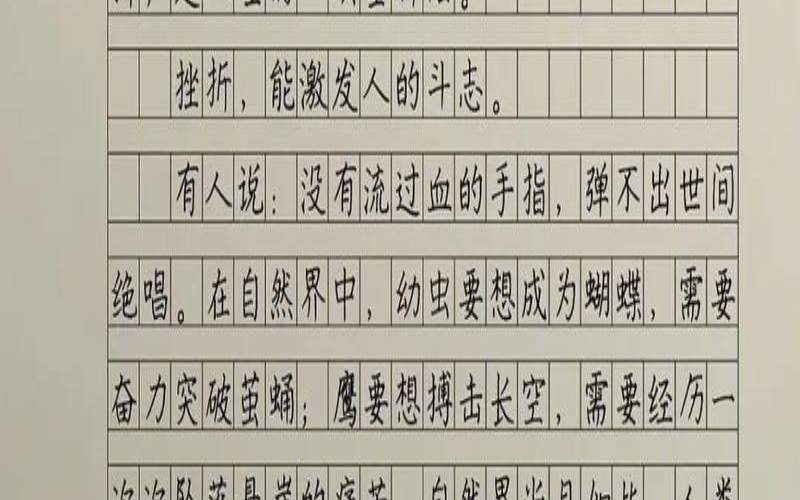 挫折，能激发人的斗志。
有人说：没有流过血的手指，弹不出世间
绝唱。在自然界中，幼虫要想成为蝴蝶，需要
奋力突破茧蛹；鹰要想搏击长空，需要经历一
次次坠落悬崖的痛苦。自然界尚且如此，人类